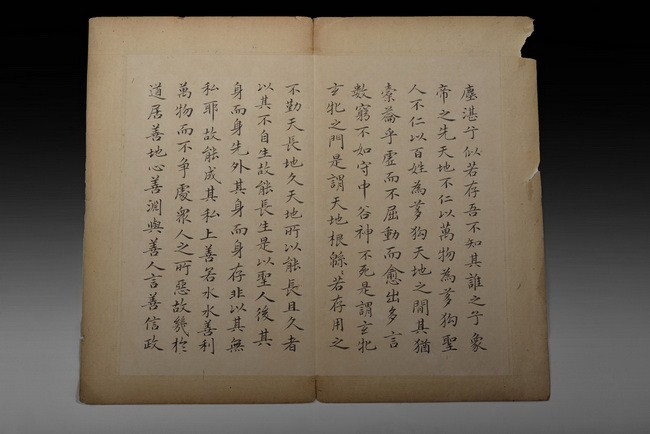 塵湛兮似若存吾不知其誰之子象
帝之先天地不仁以萬物為芻狗聖
人不仁以百姓為芻狗天地之間其猶
橐籥乎虛而不屈動而愈出多言
數窮不如守中谷神不死是謂玄牝
玄牝之門是謂天地根緜〻若存用之
不勤天長地久天地所以能長且久者
以其不自生故能長生是以聖人後其
身而身先外其身而身存非以其無
私耶故能成其私上善若水水善利
萬物而不爭處衆人之所惡故幾於
道居善地心善淵與善人言善信政